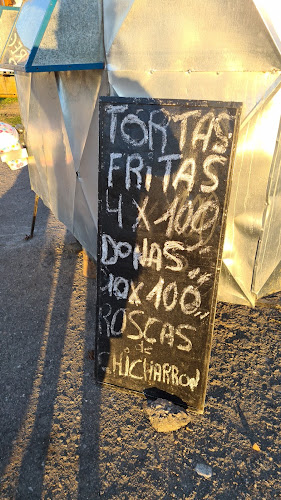 TORTAS
FRITAS
4 X 100
DONAS
10 X 100
ROSCAS
DE
CHICHARRON